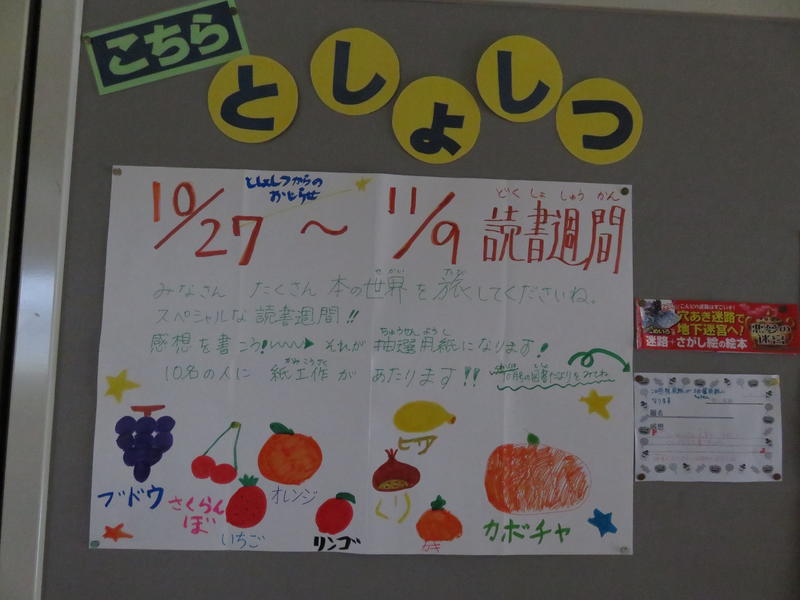 こちら
としょしつ
としょしつからの
おしらせ
10/27 ～ 11/9 読書週間
どくしょしゅうかん
みなさん たくさん 本の世界を旅してくださいね。
せかい たび
スペシャルな 読書週間!!
感想を書こう! それが 抽選用紙になります!
ちゅうせんようし
10名の人に 紙工作が あたります!!
かみこうさく
ブドウ
さくらんぼ
いちご
オレンジ
リンゴ
かき
カボチャ
穴あき迷路で
地下迷宮へ!
迷路+さがし絵の絵本
悪夢の
迷宮
題名
感想